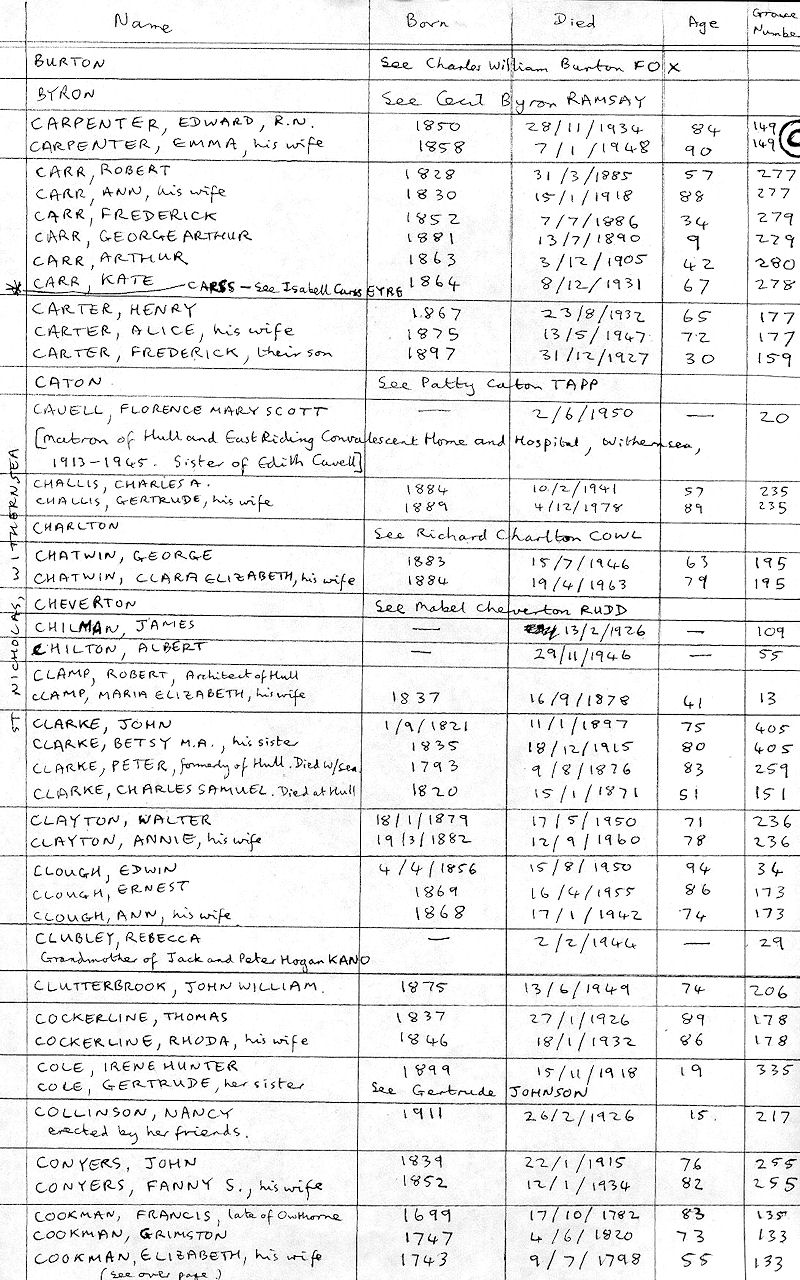 Name Born Died Age Grave Number
BURTON See Charles William Burton FOX
BYRON See Cecil Byron RAMSAY
CARPENTER, EDWARD, R.N. 1850 28/11/1934 84 149
CARPENTER, EMMA, his wife 1858 7/1/1948 90 149
CARR, ROBERT 1828 31/3/1885 57 277
CARR, ANN, his wife 1830 15/1/1918 88 277
CARR, FREDERICK 1852 7/7/1886 34 279
CARR, GEORGE ARTHUR 1881 13/7/1890 9 279
CARR, ARTHUR 1863 3/12/1905 42 280
CARR, KATE 1864 8/12/1931 67 278
* CARSS - See Isabell Carss EYRE
CARTER, HENRY 1867 23/8/1932 65 177
CARTER, ALICE, his wife 1875 13/5/1947 72 177
CARTER, FREDERICK, their son 1897 31/12/1927 30 159
CATON See Patty Caton TAPP
CAVELL, FLORENCE MARY SCOTT — 2/6/1950 — 20
[Matron of Hull and East Riding Convalescent Home and Hospital, Withernsea,
1913-1945. Sister of Edith Cavell]
CHALLIS, CHARLES A. 1884 10/2/1941 57 235
CHALLIS, GERTRUDE, his wife 1889 4/12/1978 89 235
CHARLTON See Richard Charlton COWL
CHATWIN, GEORGE 1883 15/7/1946 63 195
CHATWIN, CLARA ELIZABETH, his wife 1884 19/4/1963 79 195
CHEVERTON See Mabel Cheverton RUDD
CHILMAN, JAMES — 13/2/1926 — 109
CHILTON, ALBERT — 29/11/1946 — 55
CLAMP, ROBERT, Architect of Hull
CLAMP, MARIA ELIZABETH, his wife 1837 16/9/1878 41 13
CLARKE, JOHN 1/9/1821 11/1/1897 75 405
CLARKE, BETSY M.A., his sister 1835 18/12/1915 80 405
CLARKE, PETER, formerly of Hull. Died W/sea 1793 9/8/1876 83 259
CLARKE, CHARLES SAMUEL. Died at Hull 1820 15/1/1871 51 151
CLAYTON, WALTER 18/1/1879 17/5/1950 71 236
CLAYTON, ANNIE, his wife 19/3/1882 12/9/1960 78 236
CLOUGH, EDWIN 4/4/1856 15/8/1950 94 34
CLOUGH, ERNEST 1869 16/4/1955 86 173
CLOUGH, ANN, his wife 1868 17/1/1942 74 173
CLUBLEY, REBECCA — 2/2/1944 — 29
Grandmother of Jack and Peter Hogan KANO
CLUTTERBROOK, JOHN WILLIAM. 1875 13/6/1949 74 206
COCKERLINE, THOMAS 1837 27/1/1926 89 178
COCKERLINE, RHODA, his wife 1846 18/1/1932 86 178
COLE, IRENE HUNTER 1899 15/11/1918 19 335
COLE, GERTRUDE, her sister See Gertrude JOHNSON
COLLINSON, NANCY 1911 26/2/1926 15. 217
erected by her friends.
CONYERS, JOHN 1839 22/1/1915 76 255
CONYERS, FANNY S., his wife 1852 12/1/1934 82 255
COOKMAN, FRANCIS, late of Owthorne 1699 17/10/1782 83 135
COOKMAN, GRIMSTON 1747 4/6/1820 73 133
COOKMAN, ELIZABETH, his wife 1743 9/7/1798 55 133
(see over page)
ST NICHOLAS, WITHERNSEA